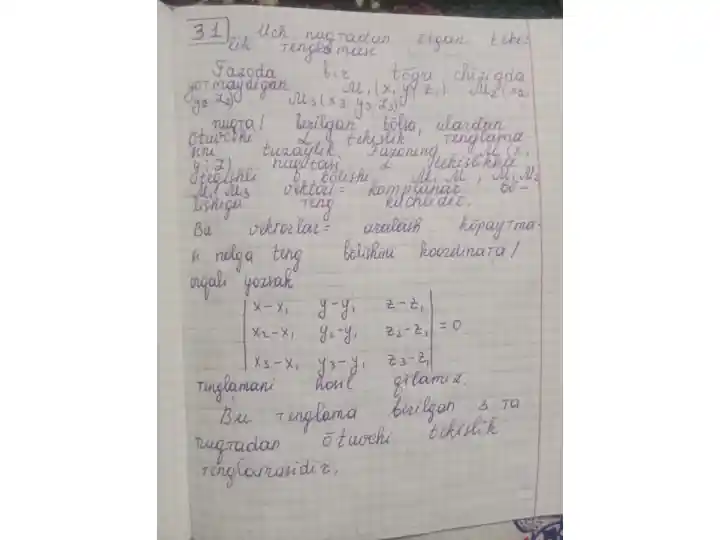 31 Uch nuqtadan o'tgan tekis-
lik tenglamasi
Fazoda bir tōgri chiziqda
yotmaydigan M₁(x₁ y₁ z₁) M₂(x₂
y₂ z₂) M₃(x₃ y₃ z₃)
nuqta/ berilgan bōlsa, ulardan
ōtuvchi L tekislik tenglama
sini tuzaylik. Fazoning M(x,
y, z) nuqtasi L tekislikka
tegishli bōlishi M₁M, M₁M₂
M₁M₃ vektor= komplanar bō-
lishiga teng kuchlidir.
Bu vektorlar= aralash kōpaytma-
si nolga teng bōlishini koordinata/
orqali yozsak
| x-x₁ y-y₁ z-z₁ |
| x₂-x₁ y₂-y₁ z₂-z₁ | = 0
| x₃-x₁ y₃-y₁ z₃-z₁ |
tenglamani hosil qilamiz.
Bu tenglama berilgan 3 ta
nuqtadan ōtuvchi tekislik
tenglamasidir.